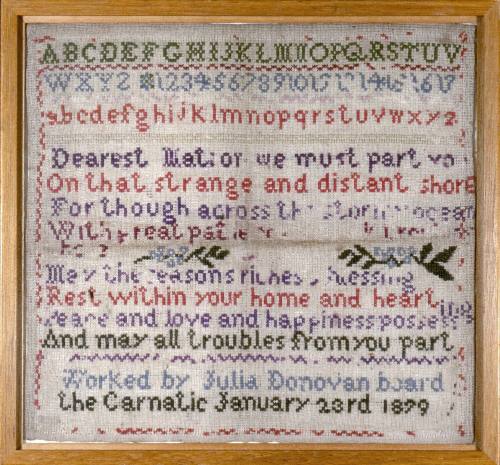 ABCDEFGHIJKLMNOPQRSTUV
WXYZ 12345678910
abcdefghijklmnopqrstuvwxyz
Dearest Matron we must part
On that strange and distant shore
For though across the stormy ocean
With great
May the seasons riches blessing
Rest within your home and heart
Peace and love and happiness possess
And may all troubles from you part
Worked by Julia Donovan board
the Carnatic January 23rd 1879